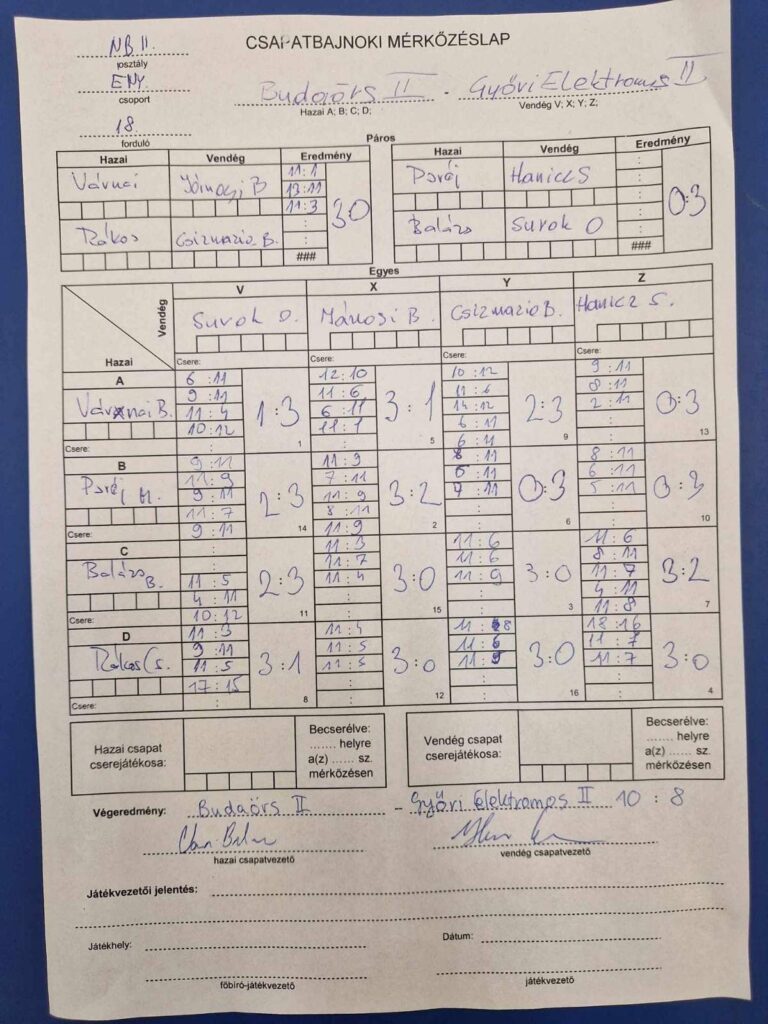 NB II.
CSAPATBAJNOKI MÉRKŐZÉSLAP
osztály
ENy
csoport
Budaörs II - Győri Elektromos II
Hazai A; B; C; D;
Vendég V; X; Y; Z;
18.
forduló
Páros
Hazai Vendég Eredmény
Hazai Vendég Eredmény
Várnai B 11:1
13:11
11:3
3:0
Rákos Csizmazia B.
###
Paráj Hanicz S
Balázs Surok O
0:3
###
Egyes
V X Y Z
Vendég
Hazai
Surok O. Mánosi B. Csizmazia B. Hanicz S.
Csere: Csere: Csere: Csere:
A
Várnai B.
Csere:
6:11
9:11
11:4
10:12
1:3
1
12:10
11:6
6:11
11:1
3:1
5
10:12
11:6
14:12
6:11
6:11
2:3
9
9:11
8:11
2:11
0:3
13
B
Paráj M.
Csere:
9:11
11:9
9:11
11:7
9:11
2:3
14
11:9
7:11
11:9
8:11
11:9
3:2
2
8:11
5:11
7:11
0:3
6
8:11
6:11
5:11
0:3
10
C
Balázs B.
Csere:
11:5
4:11
10:12
2:3
11
11:3
11:7
11:4
3:0
15
11:6
11:6
11:9
3:0
3
11:6
8:11
11:7
4:11
11:8
3:2
7
D
Rákos Cs.
Csere:
11:3
9:11
11:5
17:15
3:1
8
11:4
11:5
11:5
3:0
12
11:8
11:6
3:0
16
18:16
11:7
11:7
3:0
4
Hazai csapat
cserejátékosa:
Becserélve:
....... helyre
a(z) ...... sz.
mérkőzésen
Vendég csapat
cserejátékosa:
Becserélve:
....... helyre
a(z) ...... sz.
mérkőzésen
Végeredmény: Budaörs II - Győri Elektromos II 10 : 8
hazai csapatvezető
vendég csapatvezető
Játékvezetői jelentés:
Játékhely:
Dátum:
főbíró-játékvezető
játékvezető